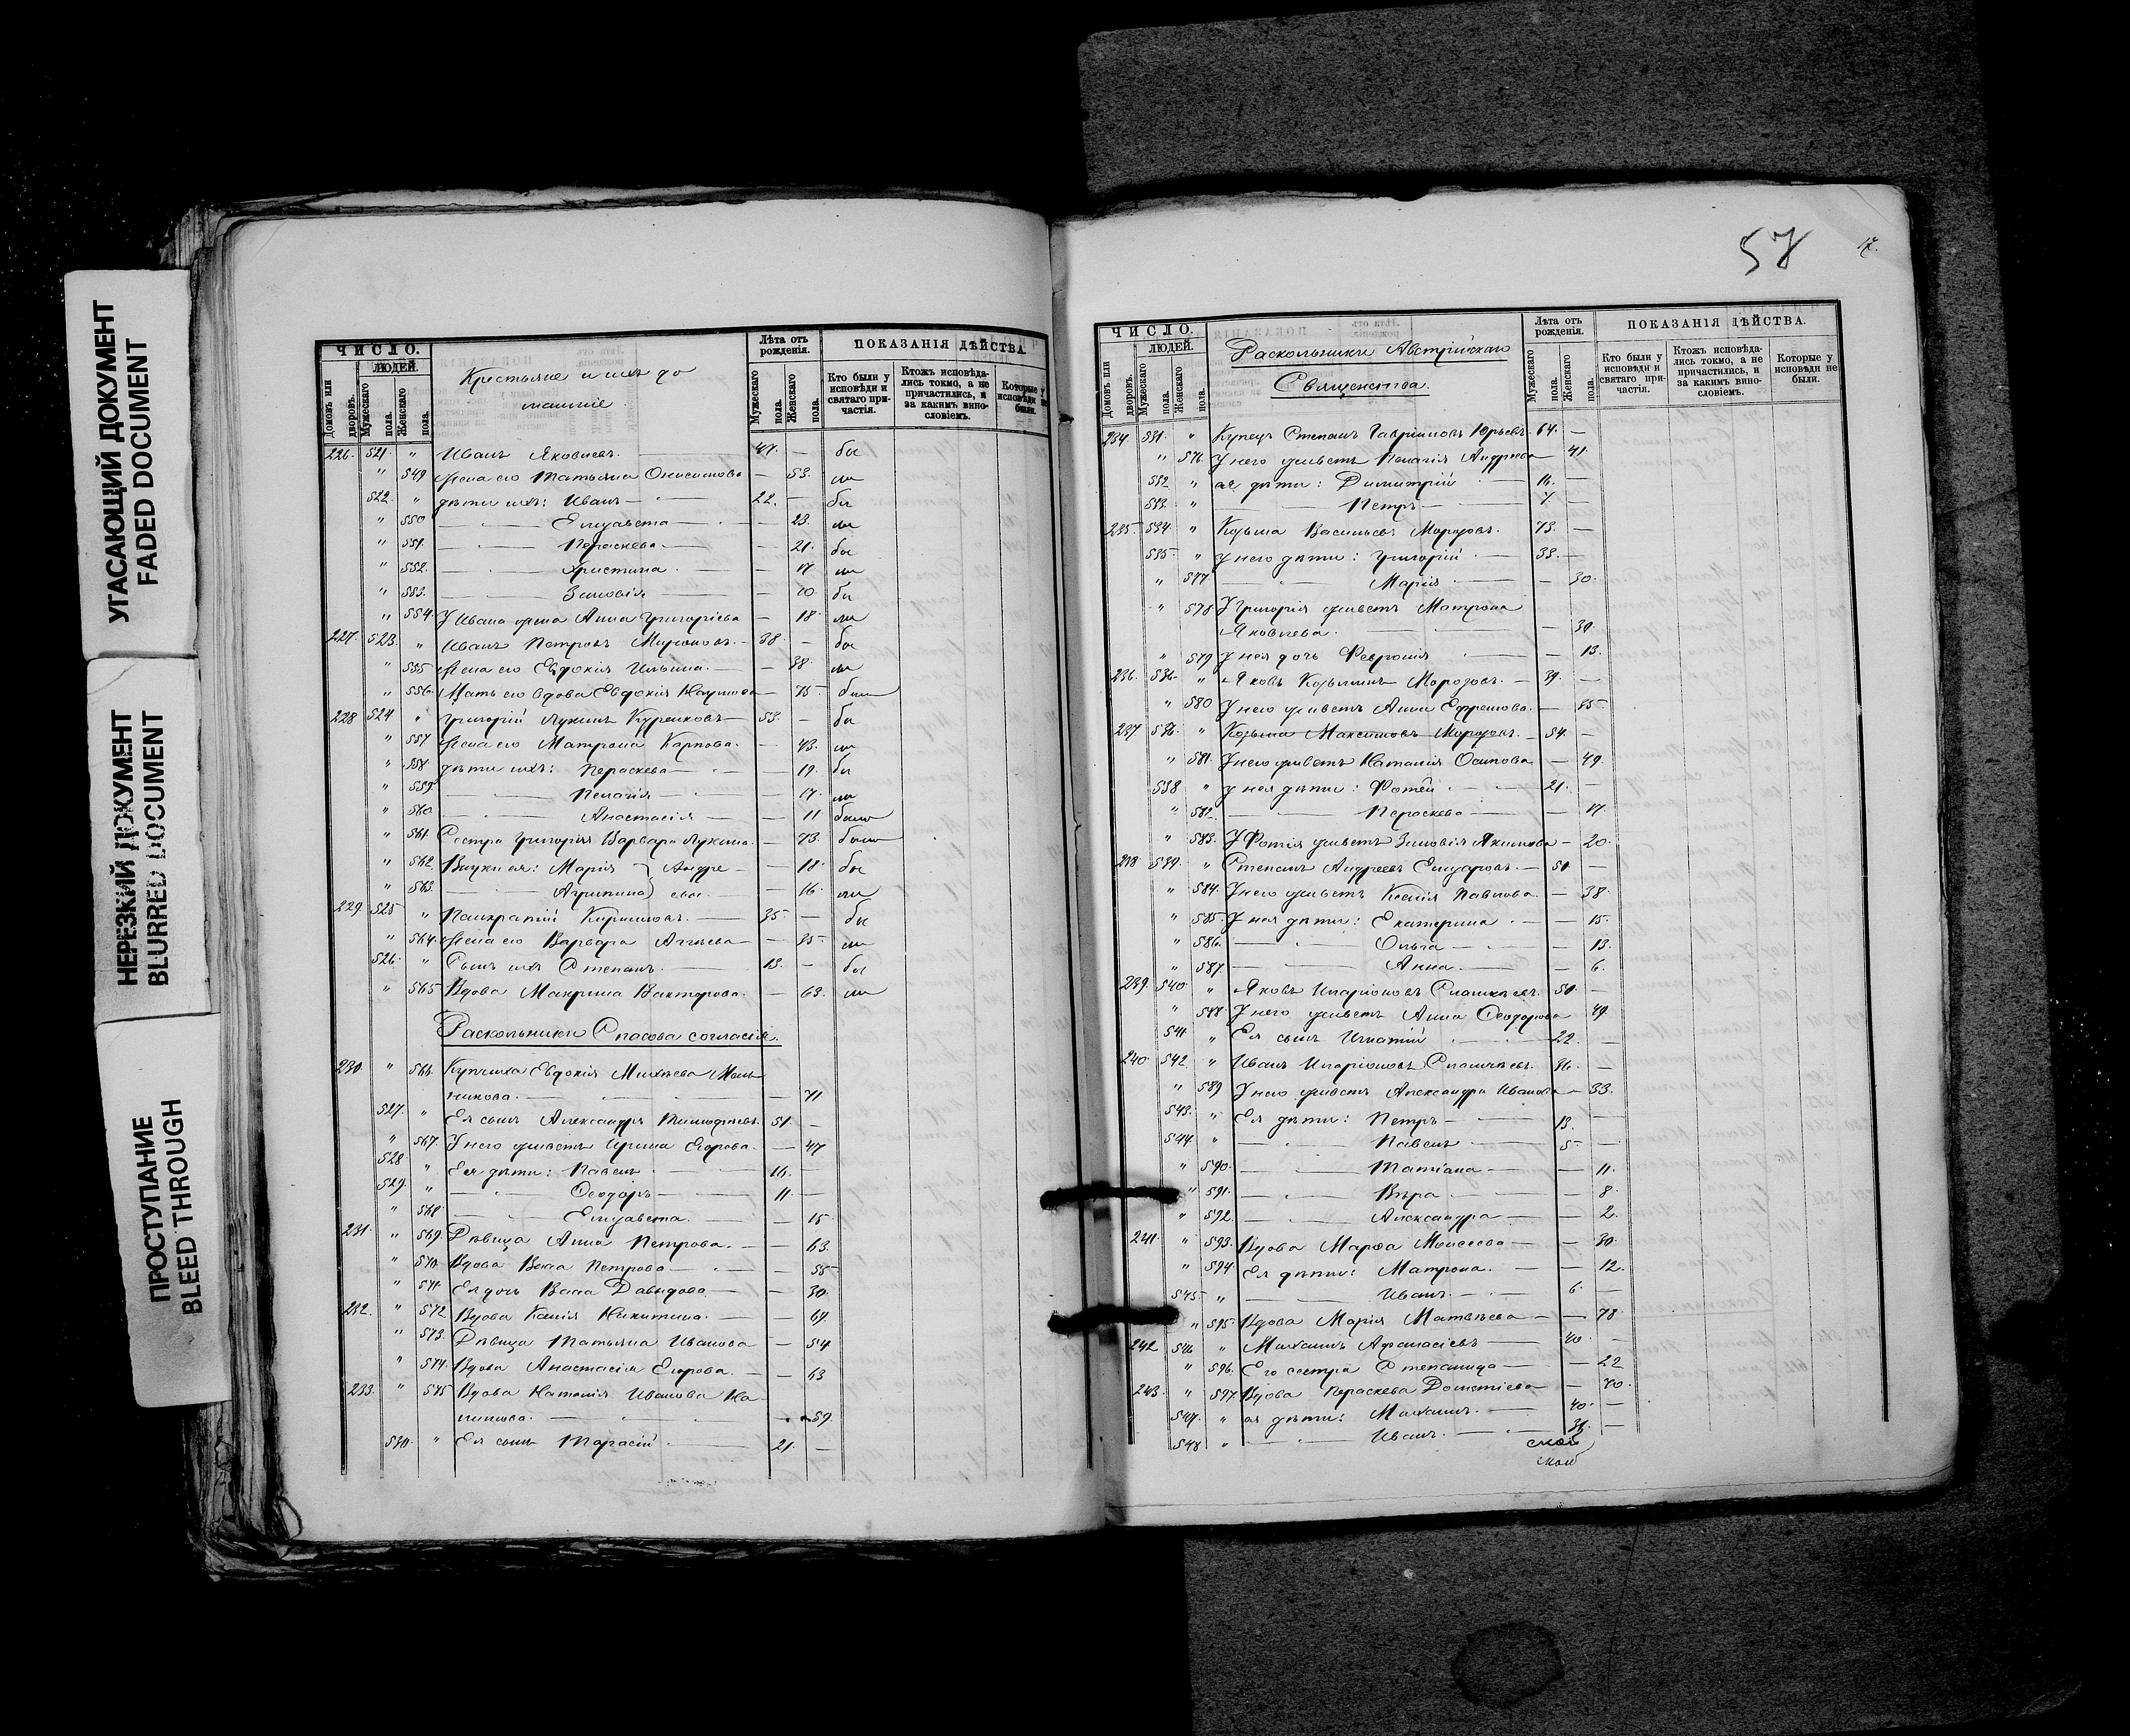 УГАСАЮЩИЙ ДОКУМЕНТ
FADED DOCUMENT
НЕРЕЗКИЙ ДОКУМЕНТ
BLURRED DOCUMENT
ПРОСТУПАНИЕ
BLEED THROUGH
ЧИСЛО.
ЛЮДЕЙ.
Домовъ или дворовъ.
Мужескаго пола.
Женскаго пола.
Крестьяне и ихъ до
машніе.
Лѣта отъ рожденія.
Мужескаго пола.
Женскаго пола.
ПОКАЗАНІЯ ДѢЙСТВА.
Кто были у исповѣди и святаго причастія.
Ктожъ исповѣдались токмо, а не причастились, и за какимъ винословіемъ.
Которые у исповѣди не были.
226. 521. " Иванъ Яковлевъ. 47. — бы
" 549 Жена его Татьяна Онисимова — 53. ли
522. " дѣти ихъ: Иванъ 22. — бы
" 550 Елизавета — 23. ли
" 551. Параскева — 21. бы
" 552. Христина — 17 ли
" 553. Зиновія — 10 бы
" 554. У Ивана жена Анна Григоріева — 18 ли
227. 523. " Иванъ Петровъ Мироновъ. 38. — бы
" 555 Жена его Евдокія Ильина. — 38. ли
" 556. Мать его вдова Евдокія Наумова — 75. были
228 524 " Григорій Лукинъ Куренковъ 53. — бы
" 557 Жена его Матрона Карпова. — 43. ли
" 558. дѣти ихъ: Параскева — 19. бы
" 559. Пелагія — 17. ли
" 560 Анастасія — 11 были
" 561. Сестра Григорія Варвара Лукина. — 73. были
" 562. Внуки ея: Марія } Андре — 18. бы
" 563. Агрипина } евы — 16. ли
229. 525 " Панкратій Кирилловъ. 35. — бы
" 564. Жена его Варвара — 35. ли
526. " Сынъ ихъ Степанъ. 13. — бы
" 565 Вдова Макрина Викторова. — 63. ли
Раскольники Спасова согласія.
230. " 566. Купчиха Евдокія Михѣева Мель
никова. — 71
527. " Ея сынъ Александръ Тимофѣевъ. 51. —
" 567. У него живетъ Ирина Егорова. — 47
528. " Ея дѣти: Павелъ 16. —
529. " Ѳеодоръ 11. —
" 568. Елизавета. — 15
231. " 569. Дѣвица Анна Петрова. — 63.
" 570. Вдова Васса Петрова — 55
" 571. Ея дочь Васса Давыдова — 30.
232. " 572 Вдова Ксенія Никитина. — 69.
" 573. Дѣвица Татьяна Иванова — 54
" 574. Вдова Анастасія Егорова. — 63
233. " 575 Вдова Наталія Иванова Ка
линова. 59.
530. " Ея сынъ Тарасій 21. —
57
17.
ЧИСЛО.
ЛЮДЕЙ.
Домовъ или дворовъ.
Мужескаго пола.
Женскаго пола.
Раскольники Австрійскаго
Священства.
Лѣта отъ рожденія.
Мужескаго пола.
Женскаго пола.
ПОКАЗАНІЯ ДѢЙСТВА.
Кто были у исповѣди и святаго причастія.
Ктожъ исповѣдались токмо, а не причастились, и за какимъ винословіемъ.
Которые у исповѣди не были.
234. 531. " Купецъ Степанъ Гавріиловъ Юрьевъ 64. —
" 576. У него живетъ Пелагія Андреева 41.
532 " ея дѣти: Димитрій 16. —
533. " Петръ 7. —
235. 534. " Козьма Васильевъ Морозовъ. 73. —
535 " У него дѣти: Григорій 33. —
" 577 Марія — 30.
" 578 У Григорія живетъ Матрона
Яковлева. — 30.
" 579 У нея дочь Февронія — 13.
236. 536. " Яковъ Козьминъ Морозовъ. 39. —
" 580 У него живетъ Анна Ефремова. — 35
237 " Козьма Максимовъ Морозовъ. 54. —
" 581. У него живетъ Наталія Осипова — 49.
538 " У нея дѣти: Фотій 21. —
" 582. Параскева — 17.
" 583. У Фотія живетъ Зиновія Якимова — 20.
238 539. " Степанъ Андреевъ Елизаровъ. 50. —
" 584. У него живетъ Ксенія Павлова. — 38.
" 585. У нея дѣти: Екатерина — 15.
" 586. Ольга — 13.
" 587 Анна. — 6.
239. 540. " Яковъ Иларіоновъ 50. —
" 588 У него живетъ Анна Ѳеодорова 49.
541. " Ея сынъ Игнатій 22. —
240. 542. " Иванъ Иларіоновъ 36. —
" 589 У него живетъ Александра Иванова — 33.
543. " Ея дѣти: Петръ 13. —
544. " Павелъ 5 —
" 590. Татіана — 11.
" 591. Вѣра — 8.
" 592. Александра — 2.
241. " 593. Вдова Марѳа Моисеева — 30.
" 594. Ея дѣти: Матрона. — 12.
545 " Иванъ 6. —
" 595. Вдова Марія Матвѣева — 78.
242 546 " Михаилъ Афанасіевъ 40. —
" 596. Его сестра Степанида — 22
243. " 597. Вдова Параскева Дометіева — 70.
547. " ея дѣти: Михаилъ. 40. —
548 " Иванъ. —